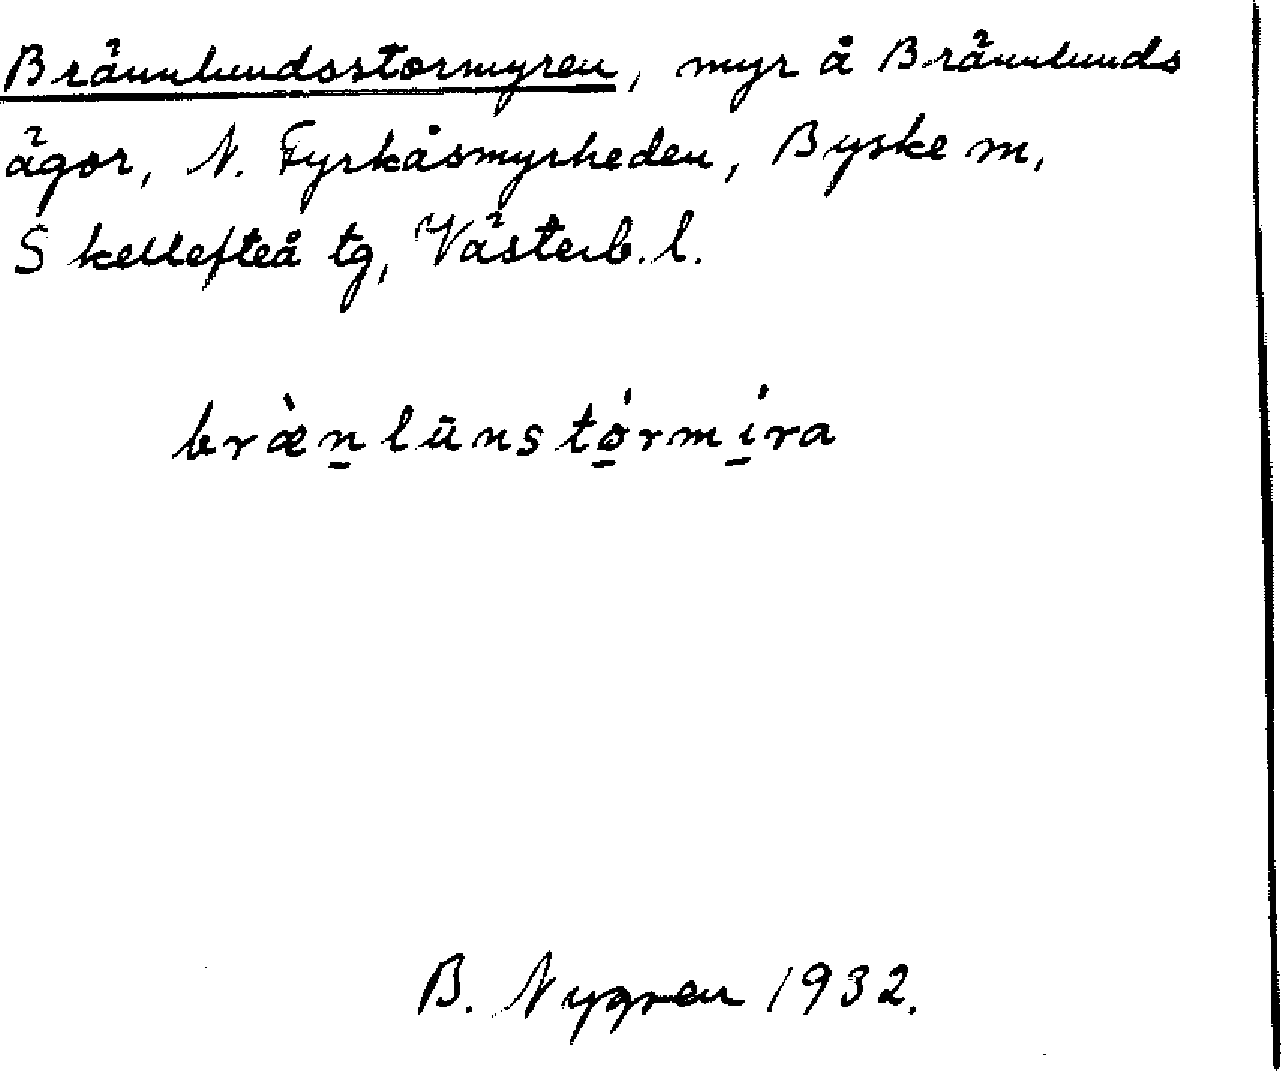 Brännlundsstormyren, myr å Brännlunds
ägor, N. Fyrkåsmyrheden, Byske sn,
Skellefteå tg, Västerb. l.
bræ̀n̠lūnstó̠rmí̠ra
B. Nygren 1932.